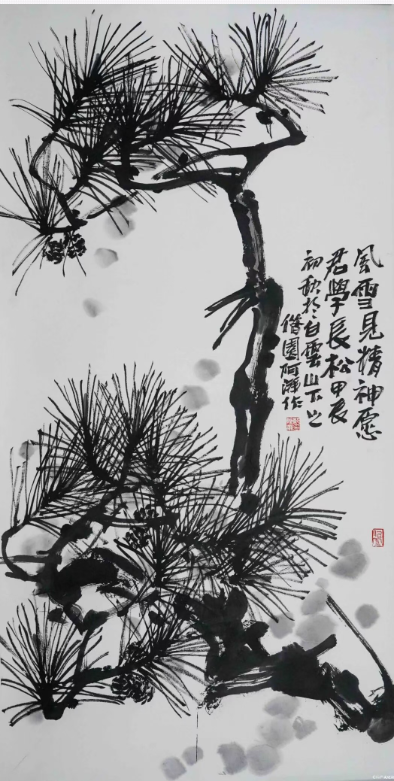 風雪見精神愿
君學長松甲辰
初秋於白雲山下之
借園阿濤作